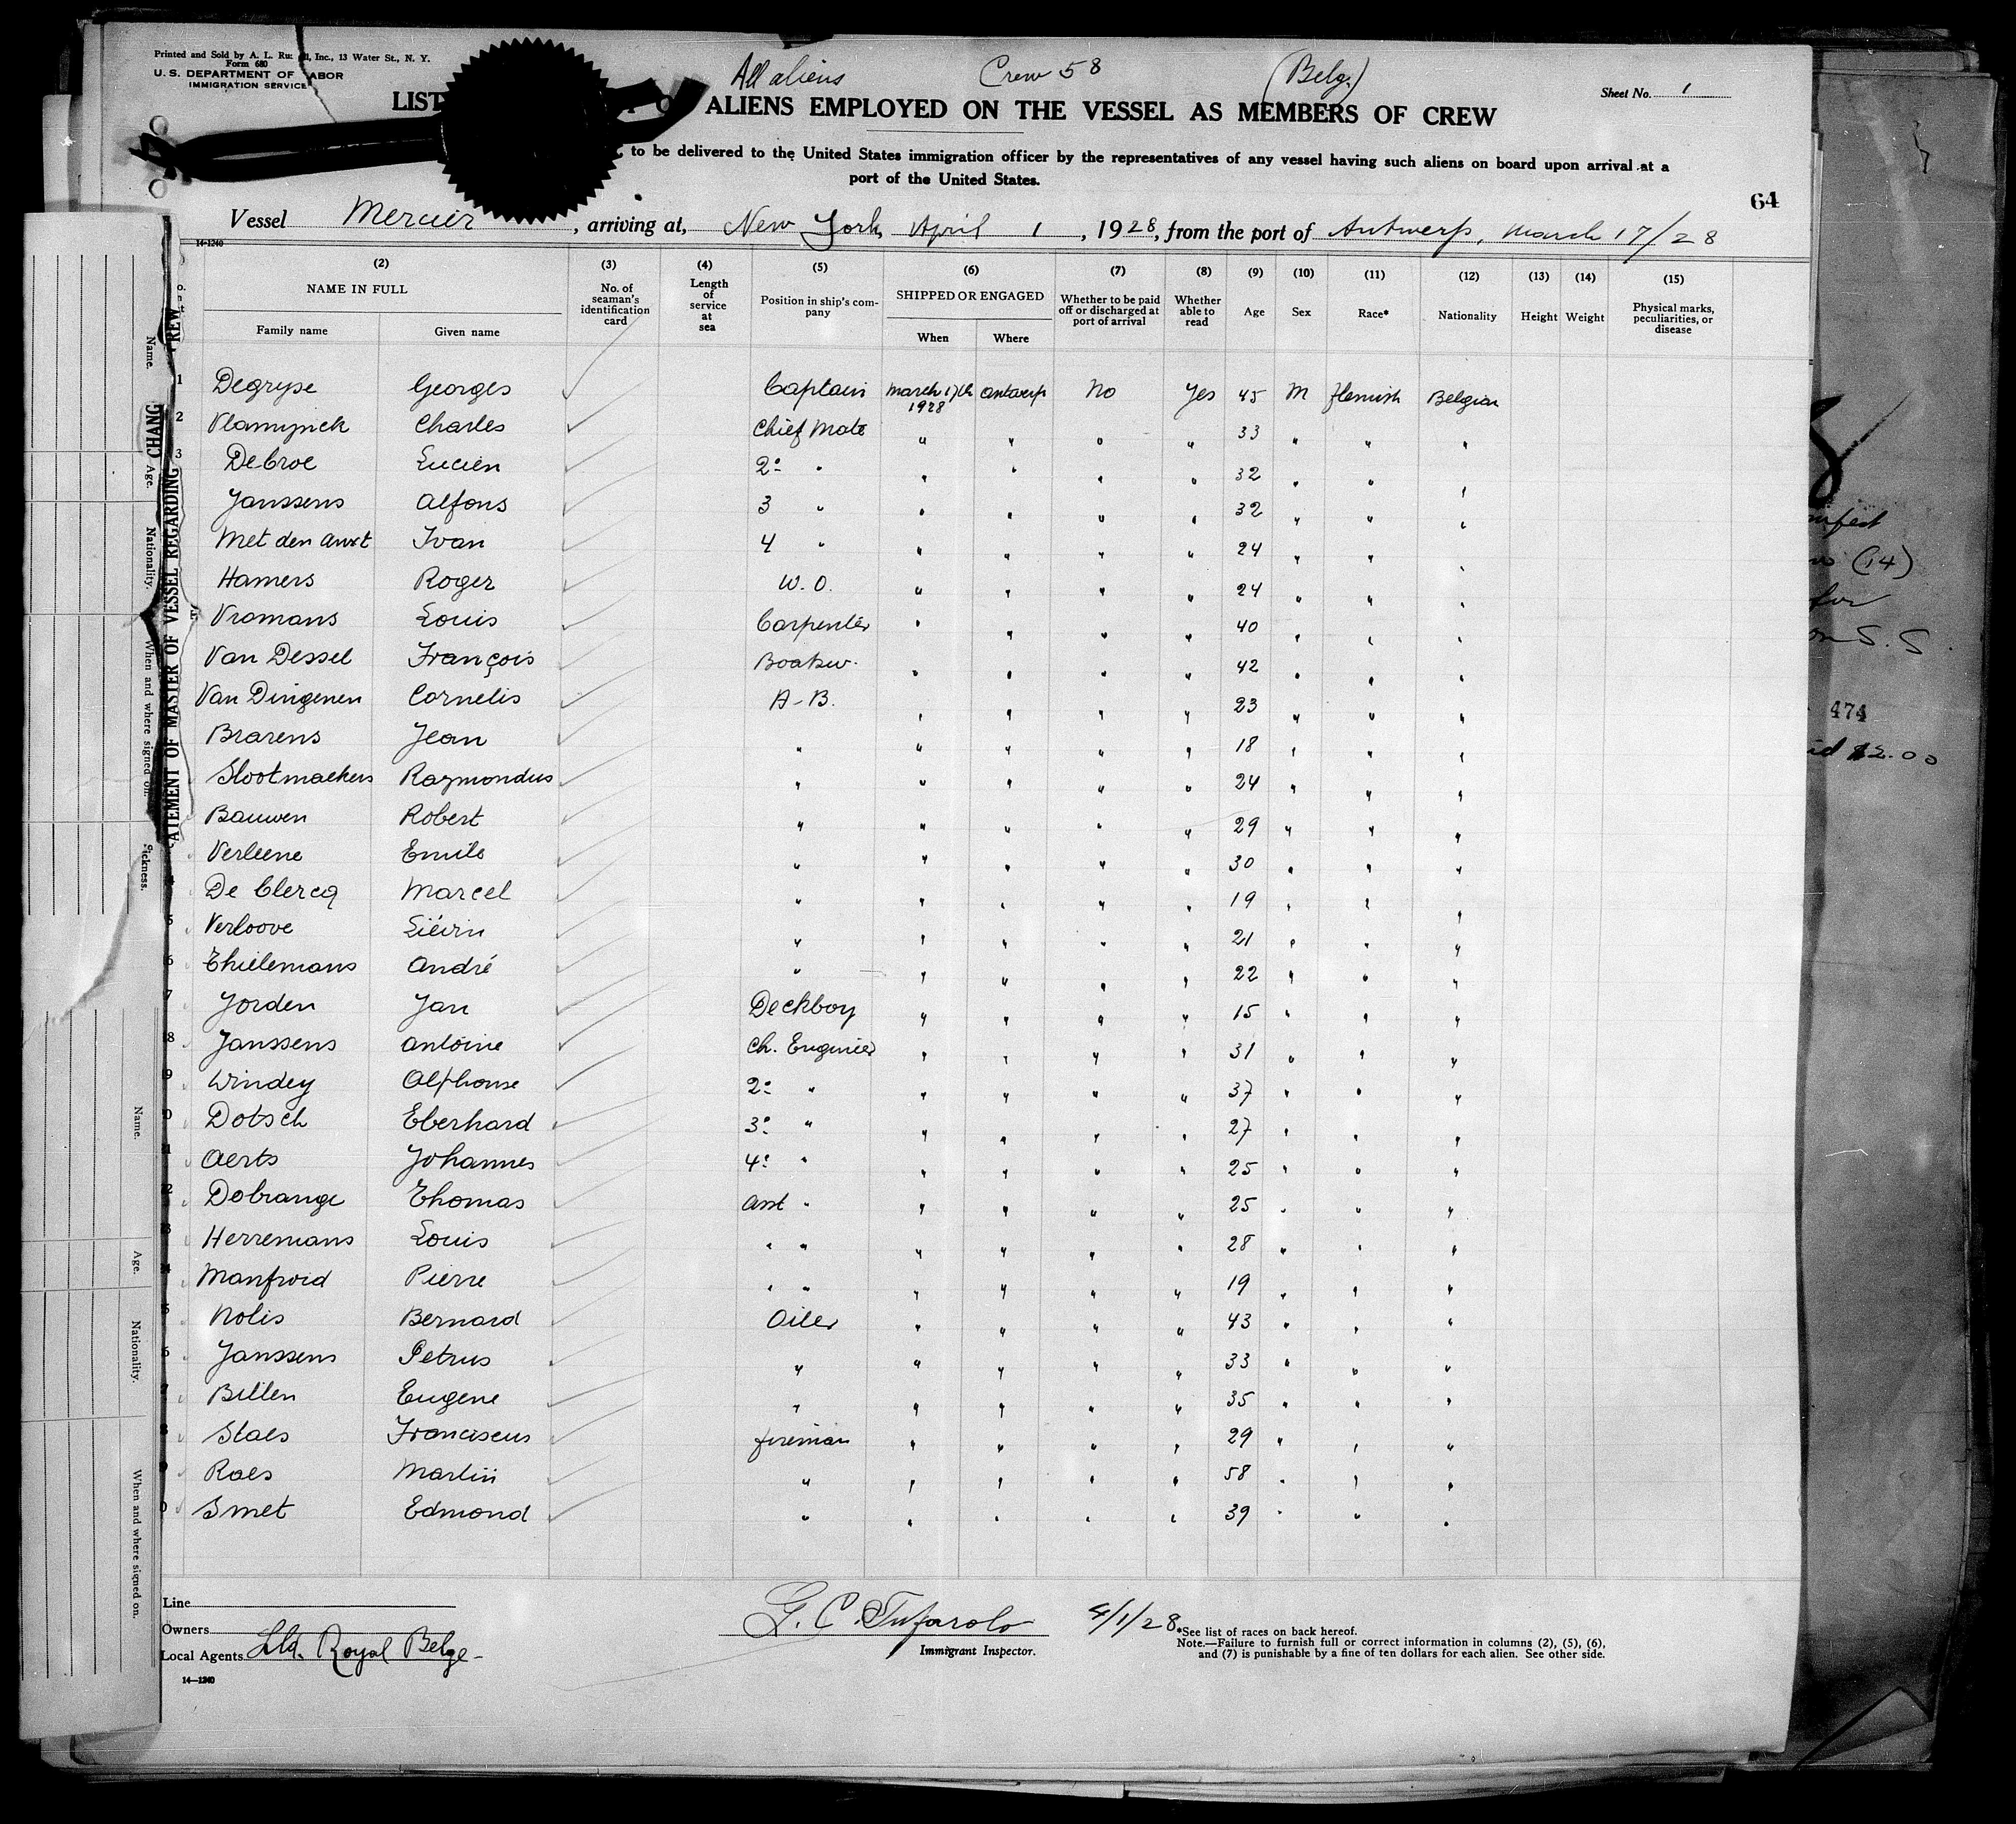 Printed and Sold by A. L. Ru ll, Inc., 13 Water St., N. Y.
Form 680
U. S. DEPARTMENT OF LABOR
IMMIGRATION SERVICE
All aliens Crew 58 (Belg.)
Sheet No. 1
LIST OF ALIENS EMPLOYED ON THE VESSEL AS MEMBERS OF CREW
to be delivered to the United States immigration officer by the representatives of any vessel having such aliens on board upon arrival at a
port of the United States.
64
Vessel Mercier, arriving at, New York, April 1, 1928, from the port of Antwerp, March 17/28
14-1240
(2) (3) (4) (5) (6) (7) (8) (9) (10) (11) (12) (13) (14) (15)
NAME IN FULL No. of seaman's identification card Length of service at sea Position in ship's company SHIPPED OR ENGAGED Whether to be paid off or discharged at port of arrival Whether able to read Age Sex Race* Nationality Height Weight Physical marks, peculiarities, or disease
Family name Given name When Where
1 Degryse Georges Captain March 17th 1928 Antwerp No Yes 45 M Flemish Belgian
2 Vlamynck Charles Chief Mate " " " " 33 " " "
3 Debroe Lucien 2° " " " " " 32 " " "
Janssens Alfons 3 " " " " " 32 " " "
Met den Anxt Ivan 4 " " " " " 24 " " "
Hamers Roger W. O. " " " " 24 " " "
Vromans Louis Carpenter " " " " 40 " " "
Van Dessel François Boatsw. " " " " 42 " " "
Van Dingenen Cornelis A-B. " " " " 23 " " "
Brarens Jean " " " " " 18 " " "
Slootmaekers Raymondus " " " " " 24 " " "
Bauwen Robert " " " " " 29 " " "
Verleene Emile " " " " " 30 " " "
De Clercq Marcel " " " " " 19 " " "
5 Verloove " " " " " 21 " " "
6 Thielemans André " " " " " 22 " " "
7 Jorden Jan Deckboy " " " " 15 " " "
8 Janssens Antoine Ch. Engineer " " " " 31 " " "
9 Windey Alphonse 2° " " " " " 37 " " "
0 Dotsch Eberhard 3° " " " " " 27 " " "
1 Aerts Johannes 4° " " " " " 25 " " "
2 Dobrange Thomas Asst " " " " " 25 " " "
3 Herremans Louis " " " " " " 28 " " "
4 Manfroid Pierre " " " " " " 19 " " "
5 Nolis Bernard Oiler " " " " 43 " " "
6 Janssens Petrus " " " " " 33 " " "
7 Billen Eugene " " " " " 35 " " "
8 Staes Franciscus fireman " " " " 29 " " "
9 Roes Martin " " " " " 58 " " "
0 Smet Edmond " " " " " 39 " " "
Line
Owners
Local Agents Lld. Royal Belge
14—1240
G. C. Tufarolo 4/1/28
Immigrant Inspector.
*See list of races on back hereof.
Note.—Failure to furnish full or correct information in columns (2), (5), (6),
and (7) is punishable by a fine of ten dollars for each alien. See other side.
ATEMENT OF MASTER OF VESSEL REGARDING CHANG
REW
Name. Age. Nationality. When and where signed on. Sickness.
Name. Age. Nationality. When and where signed on.
(14)
for
on S. S.
474
id $2.00